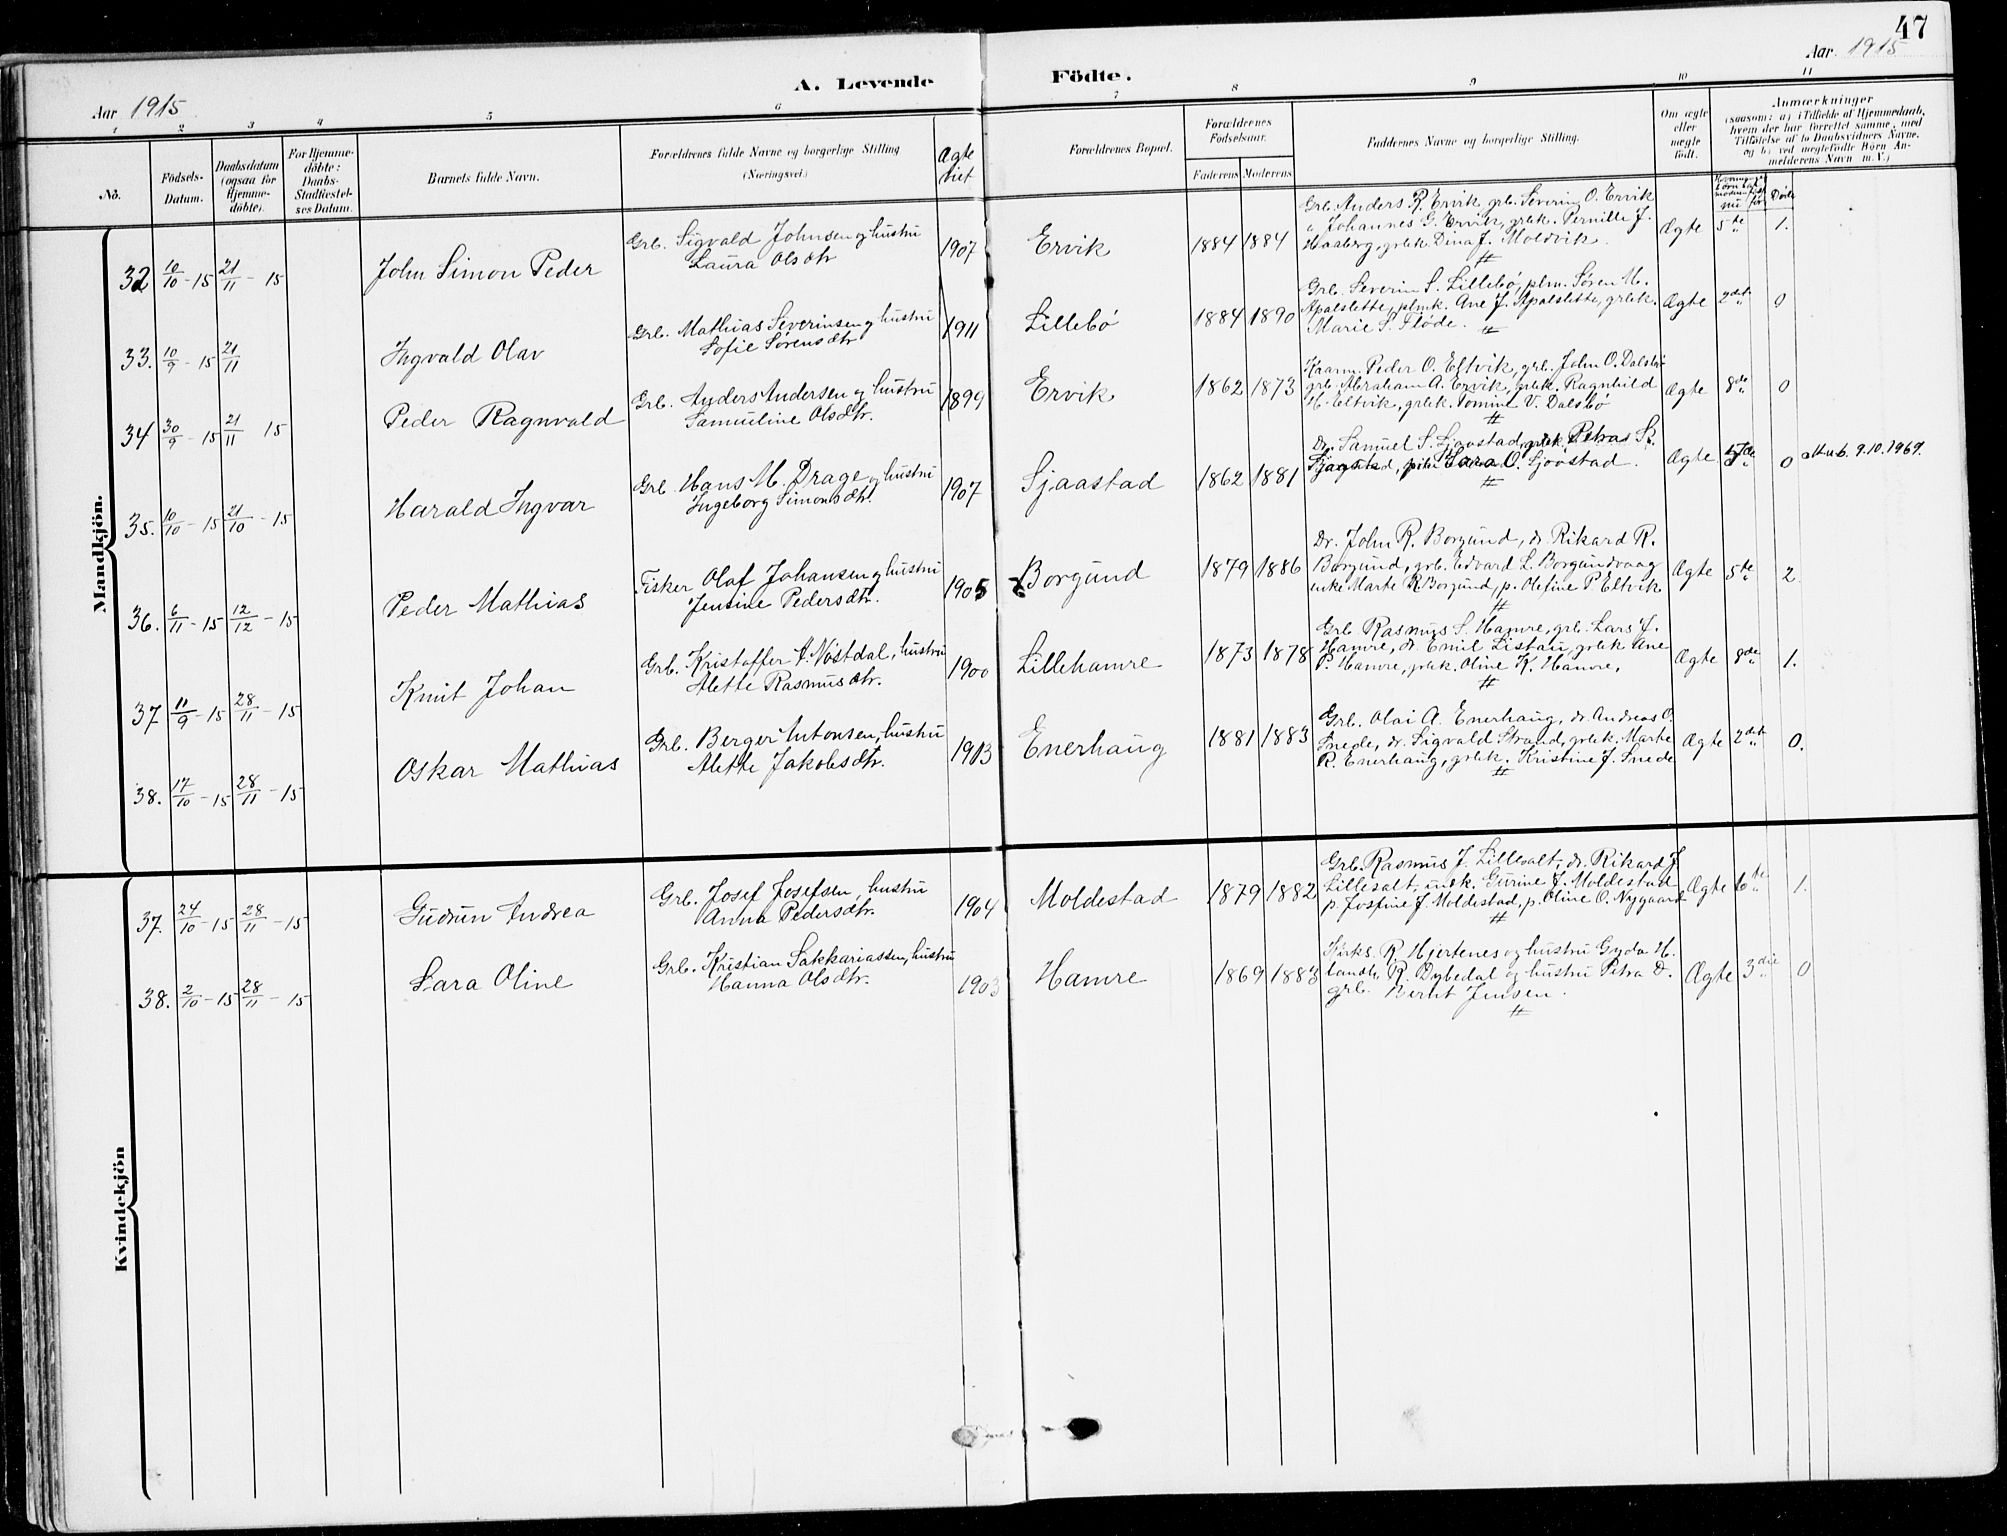 47
Aar 1915
A. Levende Födte.
Aar 1915
1 2 3 4 5 6 7 8 9 10 11
No.
Födsels-
Datum.
Daabsdatum
(ogsaa for
Hjemme-
döbte).
For Hjemme-
döbte:
Daabs-
Stadfæstel-
ses Datum.
Barnets fulde Navn.
Forældrenes fulde Navne og borgerlige Stilling
(Næringsvei.)
Ægte
viet
Forældrenes Bopæl.
Forældrenes
Födselsaar.
Faderens Moderens
Faddernes Navne og borgerlige Stilling.
Om ægte
eller
uægte
født.
Anmærkninger
(saasom: a) i Tilfælde af Hjemmedaab,
hvem der har forrettet samme, med
Tilföielse af to Daabsvidners Navne.
og b) ved uægtefödte Börn An-
melderens Navn m. V.)
Døde
Mandkjön.
32 10/10 - 15 21/11 - 15 John Simon Peder
Grb. Sigvald Johnsen og hustru
Laura Olsdtr
1907 Ervik 1884 1884
Grb. Anders R. Ervik, grb. Severin O. Ervik
" Johannes G. Ervik, grbk. Pernille J.
Haaberg, grbk. Dina J. Moldvik.
Ægte 5te 1.
33. 10/9 - 15 21/11 Ingvald Olav
Grb. Mathias Severinsen og hustru
Sofie Sørensdtr
1911 Lillebø 1884 1890
Grb. Severin S. Lillebø, plm. Søren M.
Apalslette, plmk. Ane J. Apalslette, grbk.
Marie S. Fløde.
Ægte 2det 0
34 30/9 - 15 21/11 15 Peder Ragnvald
Grb. Anders Andersen og hustru
Samuline Olsdtr.
1899 Ervik 1862 1873
Kaarm. Peder O. Eltvik, grb. John O. Dalsbø
grb. Abraham A. Ervik, grbk. Ragnhild
H. Eltvik, grbk. Tomine V. Dalsbø
Ægte 8de 0
35. 10/10 - 15 21/10 - 15 Harald Ingvar
Grb. Hans M. Drage og hustru
Ingeborg Simonsdtr.
1907 Sjaastad 1862 1881
Dr. Samuel S. Sjaastad, grbk. Petra S.
Sjaastad, Sara O. Sjøstad.
Ægte 0 9.10.1969.
36. 6/11 - 15 12/12 - 15 Peder Mathias
Fisker Olaf Johansen og hustru
Jensine Pedersdtr.
1905 Borgund 1879 1886
Dr. John R. Borgund, dr. Rikard R.
Borgund, grb. Edvard L. Borgundvaag
enke Marte R Borgund, p. Olefine P. Eltvik
Ægte 5te 2
37 11/9 - 15 28/11 - 15 Knut Johan
Grb. Kristoffer A. Nøstdal, hustru
Alette Rasmusdtr.
1900 Lillehamre 1873 1878
Grb. Rasmus S. Hamre, grb. Lars J.
Hamre, dr. Emil Listau, grbk Ane
P. Hamre, grbk. Oline K. Hamre,
Ægte 8de 1.
38. 17/10 - 15 28/11 - 15 Oskar Mathias
Grb. Berger Antonsen, hustru
Alette Jakobsdtr.
1913 Enerhaug 1881 1883
Grb. Olai A. Enerhaug, dr. Andreas O.
Snede, dr. Sigvald Strand, grbk. Marte
R. Enerhaug, grbk. Kristine J. Snede
Ægte 2det 0.
Kvindekjön
37. 24/10 - 15 28/11 - 15 Gudrun Andrea
Grb. Josef Josefsen, hustru
Anna Pedersdtr.
1904 Moldestad 1879 1882
Grb. Rasmus J. Lillesalt, dr. Rikard J
Lillesalt, Gurine J. Moldestad
p. Josfine J. Moldestad, p. Oline O. Nygaard
Ægte 6te 1.
38. 2/10 - 15 28/11 - 15 Sara Oline
Grb. Kristian Sakkariassen, hustru
Hanna Olsdtr.
1903 Hamre 1869 1883
Kirks. R. Hjertenes og hustru Gyda H.
landh. R. Dybedal og hustru Petra D.
grb. Bernt Jensen.
Ægte 3die 0